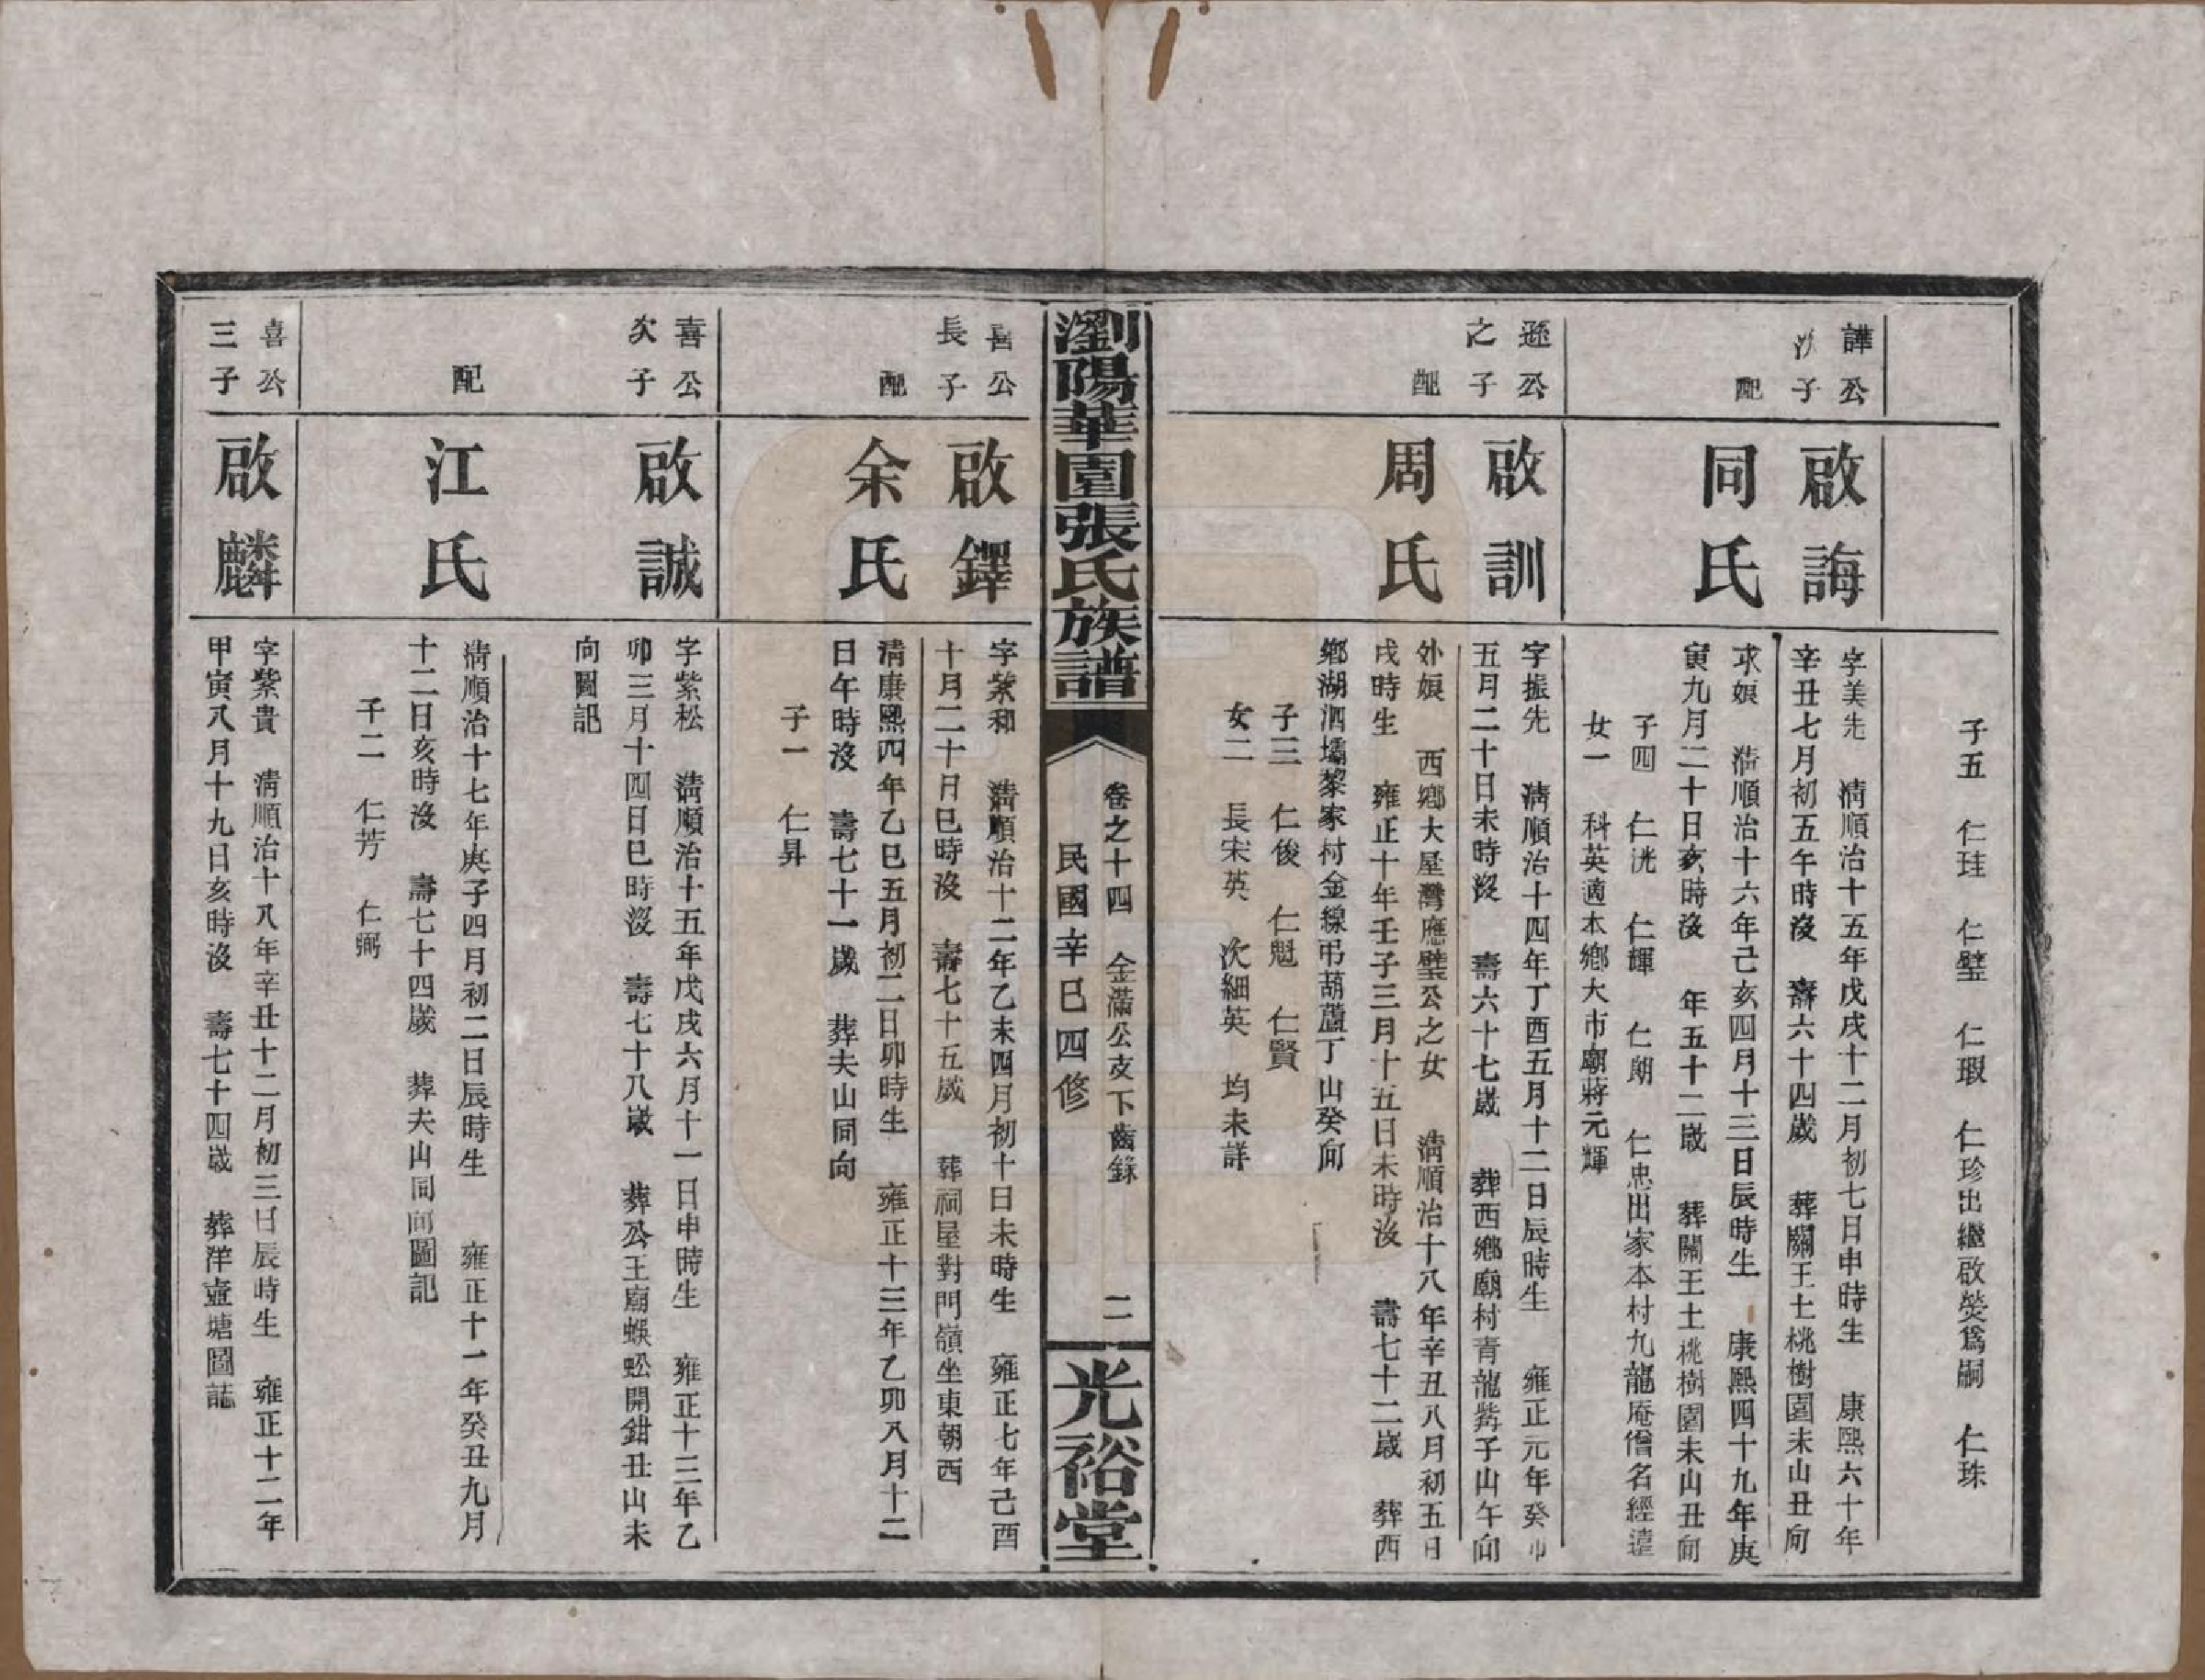 子五 仁珪 仁璧 仁瑕 仁珍出繼啟熒爲嗣 仁珠
譁公
次子
啟誨
字美先 清順治十五年戊戌十二月初七日申時生 康熙六十年
辛丑七月初五午時沒 壽六十四歲 葬關王土桃樹園未山丑向
配
同氏
求娘 清順治十六年己亥四月十三日辰時生 康熙四十九年庚
寅九月二十日亥時沒 年五十二歲 葬關王土桃樹園未山丑向
子四 仁洸 仁輝 仁朗 仁忠出家本村九龍庵僧名經遠
女一 科英適本鄉大市廟蔣元輝
遜公
之子
啟訓
字振先 清順治十四年丁酉五月十二日辰時生 雍正元年癸卯
五月二十日未時沒 壽六十七歲 葬西鄉廟村青龍觜子山午向
配
周氏
外娘 西鄉大屋灣應璧公之女 清順治十八年辛丑八月初五日
戌時生 雍正十年壬子三月十五日未時沒 壽七十二歲 葬西
鄉湖泗壩黎家村金線弔葫蘆丁山癸向
子三 仁俊 仁魁 仁賢
女二 長宋英 次細英 均未詳
瀏陽華園張氏族譜
卷之十四 金滿公支下齒錄 二
民國辛巳四修
光裕堂
喜公
長子
啟鐸
字紫和 清順治十二年乙未四月初十日未時生 雍正七年己酉
十月二十日巳時沒 壽七十五歲 葬祠屋對門嶺坐東朝西
配
余氏
清康熙四年乙巳五月初二日卯時生 雍正十三年乙卯八月十二
日午時沒 壽七十一歲 葬夫山同向
子一 仁昇
喜公
次子
啟誠
字紫松 清順治十五年戊戌六月十一日申時生 雍正十三年乙
卯三月十四日巳時沒 壽七十八歲 葬公王廟蜈蚣開鉗丑山未
向圖記
配
江氏
清順治十七年庚子四月初二日辰時生 雍正十一年癸丑九月
十二日亥時沒 壽七十四歲 葬夫山同向圖記
子二 仁芳 仁弼
喜公
三子
啟麟
字紫貴 清順治十八年辛丑十二月初三日辰時生 雍正十二年
甲寅八月十九日亥時沒 壽七十四歲 葬洋壼塘圖誌